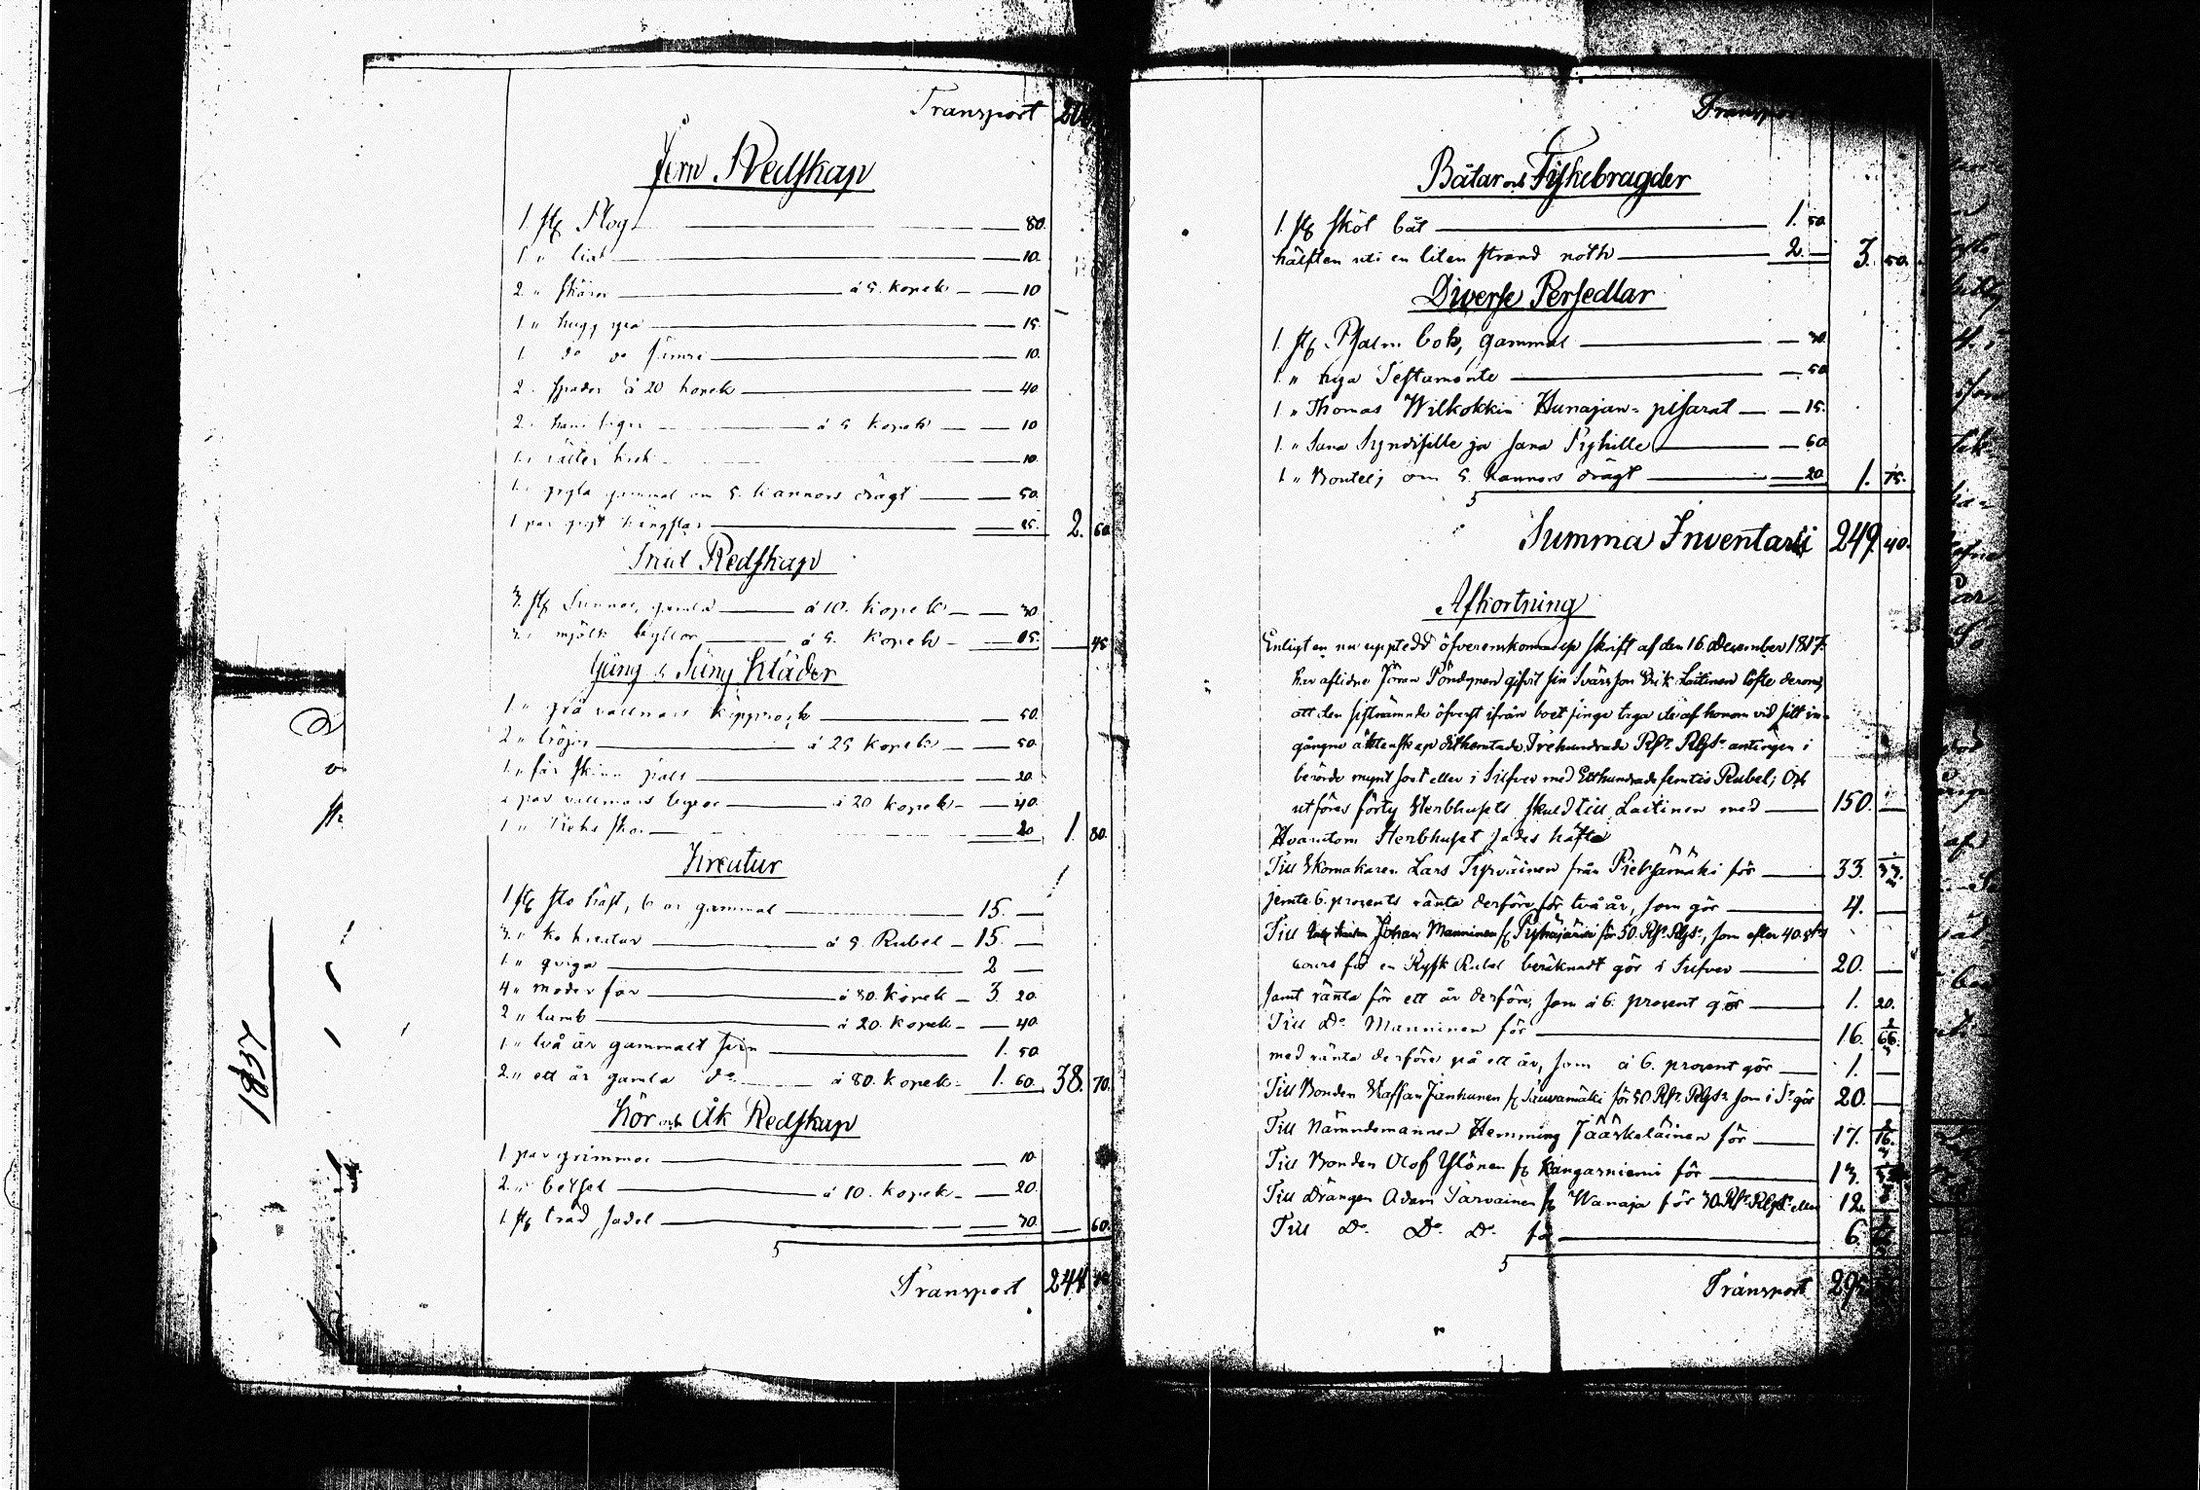 1837
Transport
Jern Redskap
1 st Plog 80.
1 " lia 10.
2 " skäror á 5. Kopek 10
1 " hugg yxa 15.
1 do do sämre 10.
2 " spader á 20 kopek 40
2 á 5 Kopek 10
1 " 10.
1 " gryta gammal om 5. kannors drägt 50.
1 par 25. 2. 60
Träd Redskap
3 st Tunnor, gamla á 10. Kopek 30
3 " mjölk byttor á 5. Kopek 15. 45
Gång & Säng Kläder
1 " grå vallmars kapprock 50.
2 " tröjor á 25 Kopek 50.
1 " får skinn päls 20
2 par vallmars byxor á 20 kopek 40.
1 " Pieks skor 20 1. 80.
Kreatur
1 st sto häst, 6 år gammal 15.
3 " ko kreatur á 5. Rubel 15.
1 " qviga 2
4 " moder får á 80. Kopek 3. 20.
2 " lamb á 20. Kopek 40.
1 " två år gammalt svin 1. 50
2 " ett år gamla do á 80. Kopek 1. 60. 38. 70.
Kör och Åk Redskap
1 par grimmor 10.
2 " betsel á 10. Kopek 20.
1 st träd sadel 30. 60.
Transport 244.
Transport
Båtar och Fiskebragder
1 st sköt båt 1. 50.
hälften uti en liten strand noth 2. 3. 50.
Diverse Persedlar
1 st Psalm bok, gammal 30.
1 " nya Testamente 50
1 " Thomas Wilkokkin Hunajan= pisarat 15.
1 " Sana Syndisille ja sana Pyhille 60
1 " Boutelj om 5. kannors drägt 20 1. 75.
Summa Inventarii 249. 40.
Afkortning
Enligt en nu uppteedd öfverenskommelse skrift af den 16. December 1817.
har aflidne Jöran Pöndynen gifvit sin Svärson Erik Laitinen löfte derom,
att den sistnämnde öfverst ifrån boet finge taga de af honom vid sitt in=
gångne äktenskap ditkomtade Trehundrade Rsr Rgs antingen i
berörde mynt sort eller i Silfver med Etthundrade femtio Rubel; Och
utföres förty Sterbhusets skuld till Laitinen med 150.
Hvarutom Sterbhuset sades häfta
Till Skomakaren Lars Tyrväinen från Pieksämäki för 33. 33.
jemte 6. procents ränta derföre för två år, som gör 4.
Till Johan Manninen f. Pyhäjärvi för 50. Rsr Rgs, som efter 40
cours för en Rysk Rubel beräknadt gör i Silfver 20.
samt ränta för ett år derföre, som á 6. procent gör 1. 20.
Till Do Manninen för 16. 66.
med ränta derföre på ett år, som á 6. procent gör 1.
Till Bonden Staffan Janhunen f. Sauvamäki för 50 Rsr Rgs som i Sr gör 20.
Till Nämndemannen Hemming Jääskeläinen för 17. 16.
Till Bonden Olof Ylönen f. Kangasniemi för 13.
Till Drängen Adam Tarvainen f. Wanaja för 30. Rsr Rgs eller 12.
Till Do Do Do för 6.
Transport